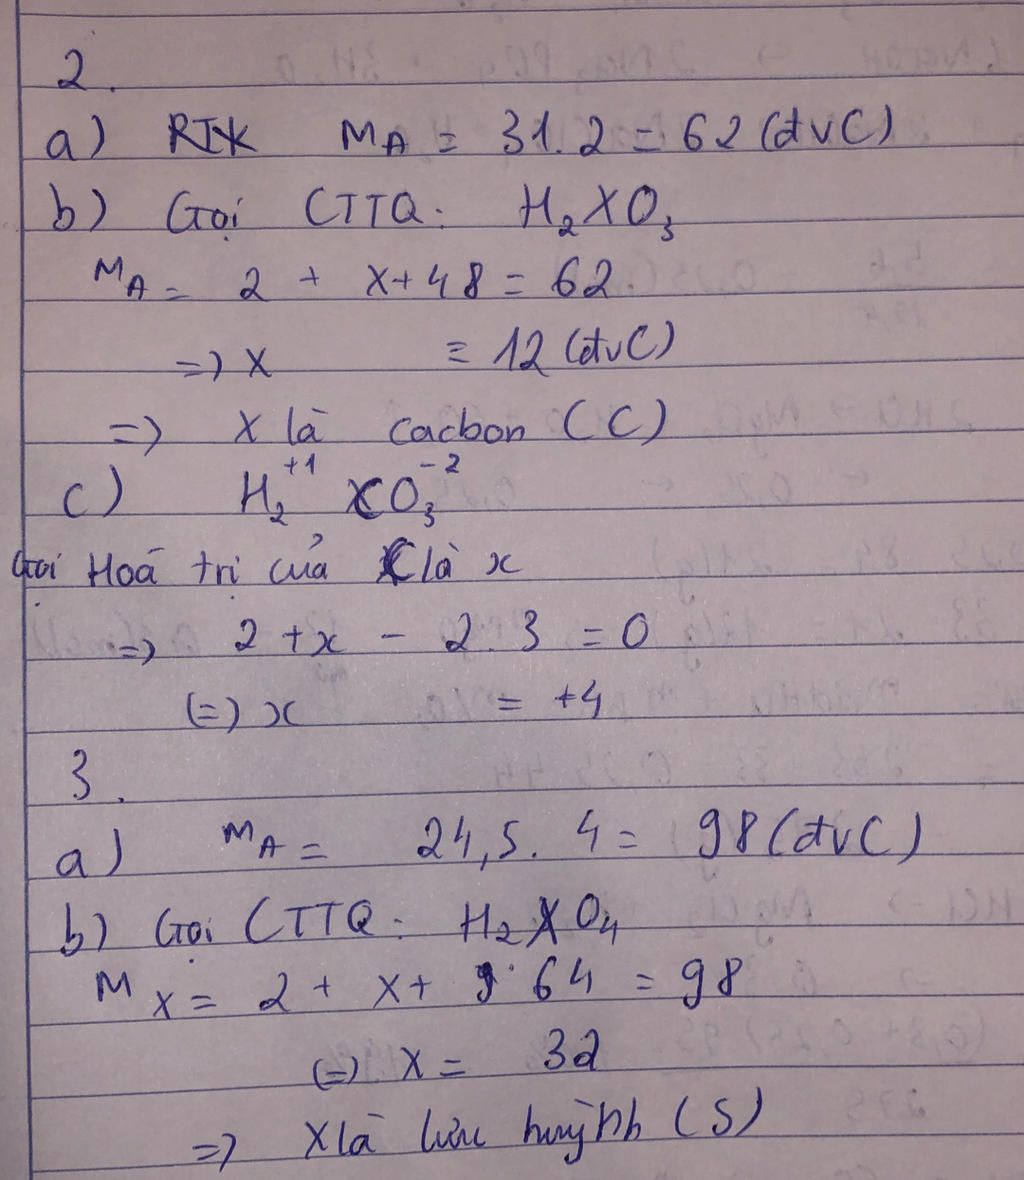 2.
a) PTK MA = 31.2 = 62 (đvC)
b) Gọi CTTQ: H₂XO₃
MA = 2 + X + 48 = 62
=> X = 12 (đvC)
=> X là cacbon (C)
c) H₂⁺¹ CO₃⁻²
Gọi Hoá trị của C là x
=> 2 + x - 2.3 = 0
(=) x = +4
3.
a) MA = 24,5. 4 = 98 (đvC)
b) Gọi CTTQ: H₂XO₄
MX = 2 + X + 64 = 98
(=) X = 32
=> X là lưu huỳnh (S)